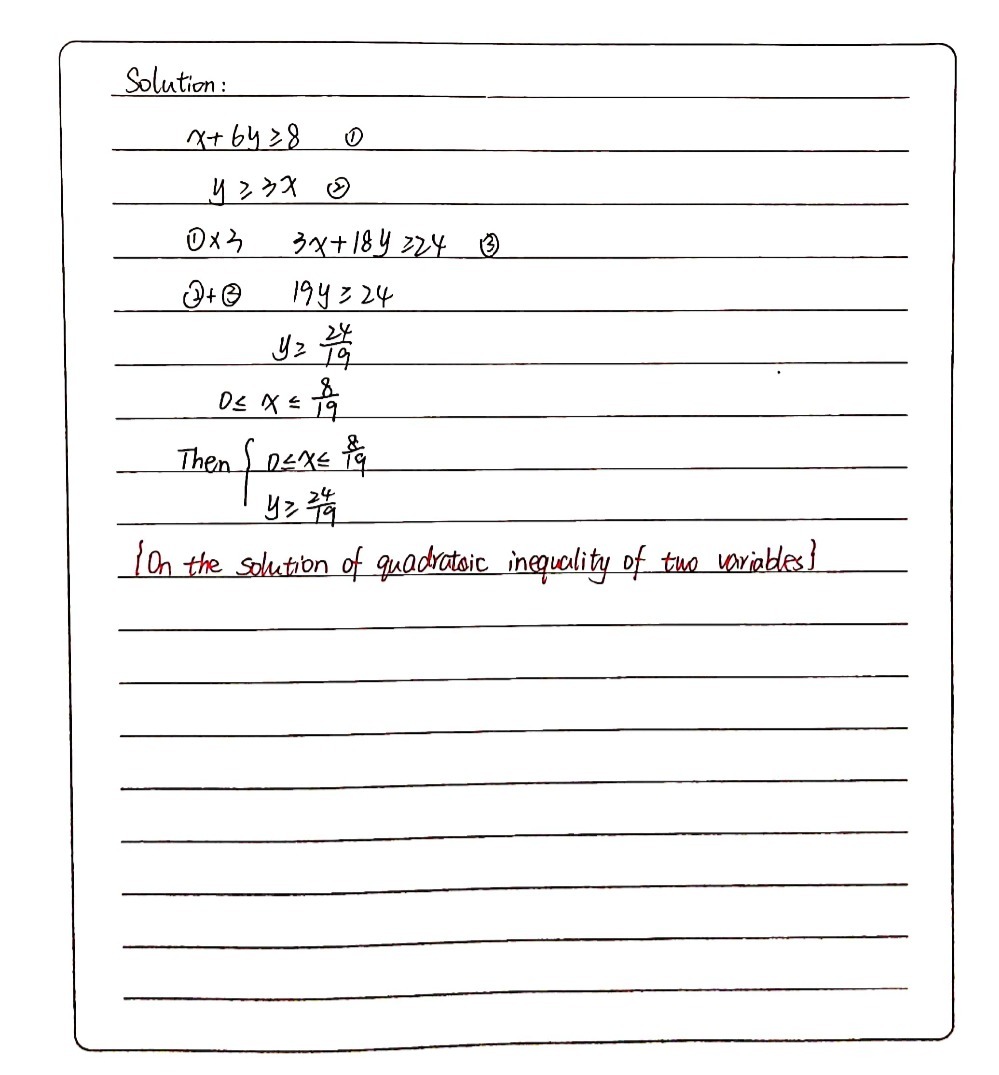 Solution:
x + 6y ≥ 8 ①
y ≥ 3x ②
①×3 3x + 18y ≥ 24 ③
②+③ 19y ≥ 24
y ≥ 24/19
0 ≤ x ≤ 8/19
Then { 0 ≤ x ≤ 8/19
y ≥ 24/19
{On the solution of quadratoic inequality of two variables}